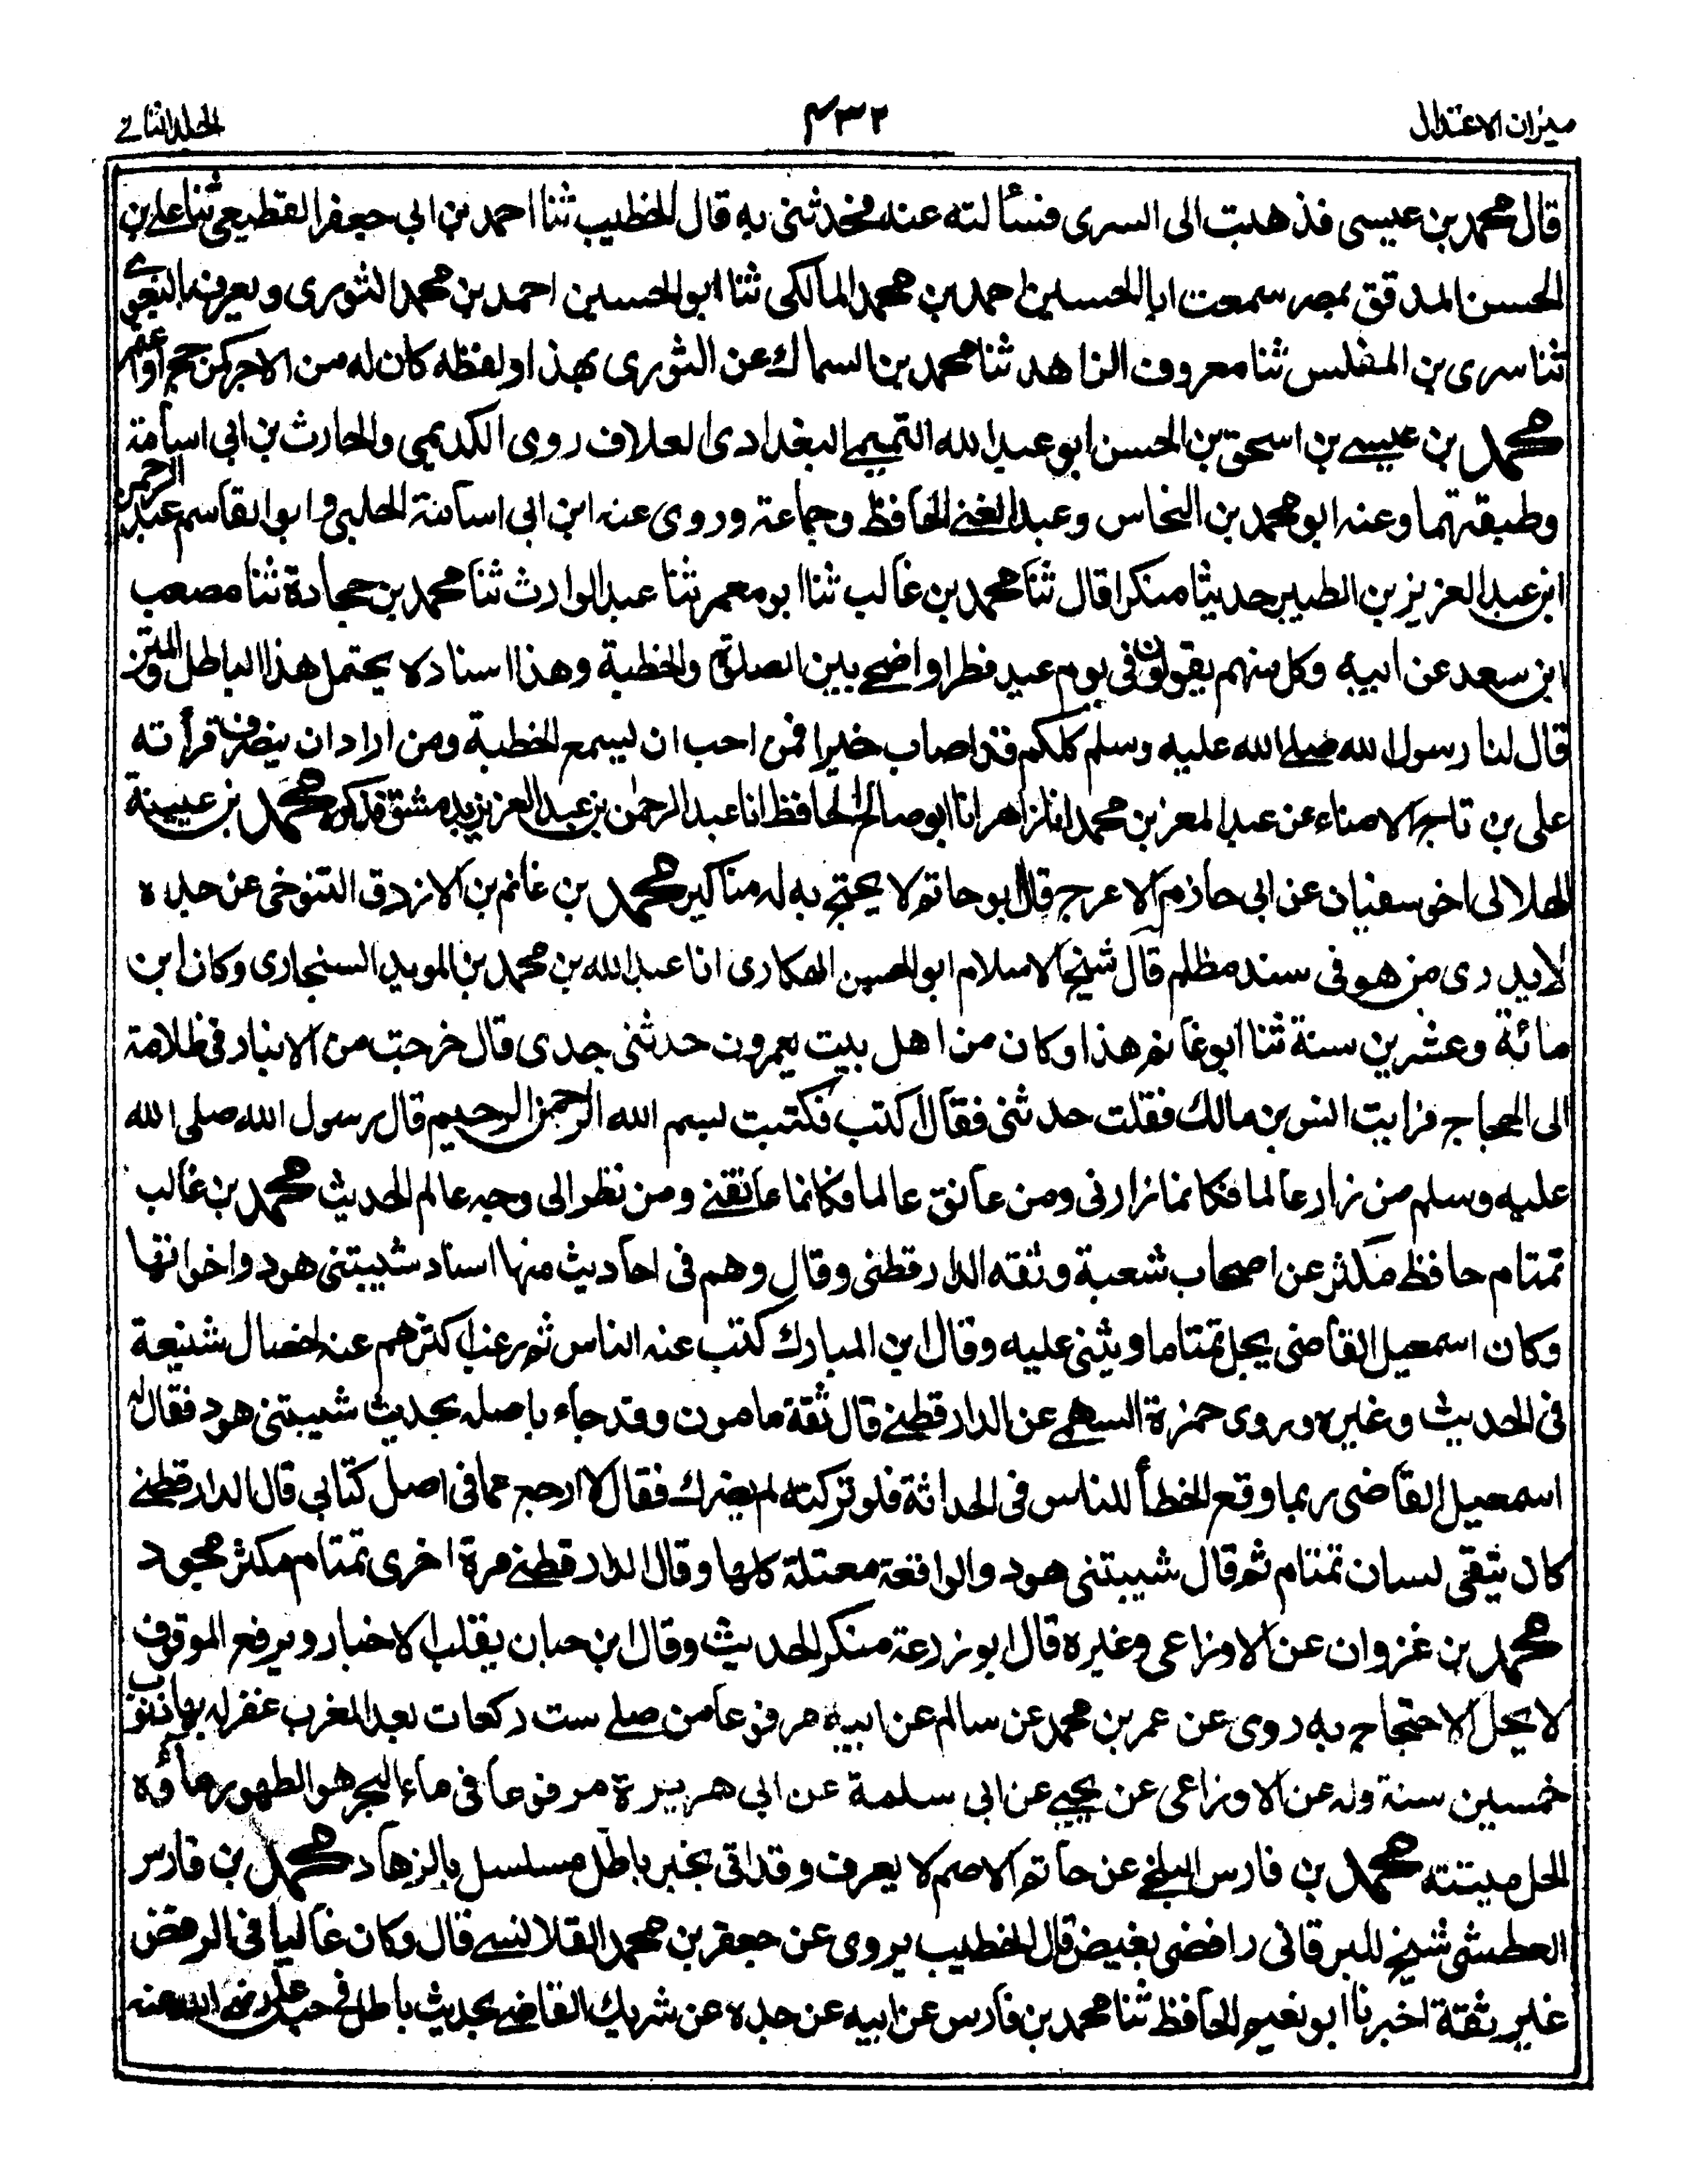 ميزان الاعتدال
٤٣٢
الجلد الثانى
قال محمد بن عيسى فذهبت الى السرى فسألته عنه فحدثنى به قال الخطيب ثنا احمد بن ابى جعفر القطيعى ثنا على بن
الحسن المدقق بمصر سمعت ابا الحسين احمد بن محمد المالكى ثنا ابو الحسين احمد بن محمد الثورى ويعرف بالبغوى
ثنا سرى بن المغلس ثنا معروف الزاهد ثنا محمد بن السماك عن الثورى بهذا ولفظه كان له من الاجر كمن حج او اعتمر
محمد بن عيسى بن اسحق بن الحسن ابو عبد الله التميمى البغدادى العلاف روى الكديمى والحارث بن ابى اسامة
وطبقتهما وعنه ابو محمد بن النحاس وعبد الغنى الحافظ وجماعة وروى عنه ابن ابى اسامة الحلبى و ابو القاسم عبد الرحمن
ابن عبد العزيز بن الطبيز حديثا منكرا قال ثنا محمد بن غالب ثنا ابو معمر ثنا عبد الوارث ثنا محمد بن جحادة ثنا مصعب
ابن سعد عن ابيه وكل منهم يقول فى يوم عيد فطر او اضحى بين الصلوة والخطبة وهذا اسناد لا يحتمل هذا الباطل والمتن
قال لنا رسول الله صلى الله عليه وسلم كلكم قد اصاب خيرا فمن احب ان يسمع الخطبة ومن اراد ان ينصرف قرأته
على بن تاج الامناء عن عبد المعز بن محمد انا زاهر انا ابو صالح الحافظ انا عبد الرحمن بن عبد العزيز بدمشق فذكره محمد بن عيينة
الهلالى اخو سفيان عن ابى حازم الاعرج قال ابو حاتم لا يحتج به له مناكير محمد بن غانم بن الازرق التنوخى عن جده
لا يدرى من هو فى سند مظلم قال شيخ الاسلام ابو الحسن الهكارى انا عبد الله بن محمد بن المويد السنجارى وكان ابن
مائة وعشرين سنة ثنا ابو غانم هذا وكان من اهل بيت يعمرون حدثنى جدى قال خرجت من الانبار فى ظلامة
الى الحجاج فرايت انس بن مالك فقلت حدثنى فقال اكتب فكتبت بسم الله الرحمن الرحيم قال رسول الله صلى الله
عليه وسلم من زار عالما فكانما زارنى ومن عانق عالما فكانما عانقنى ومن نظر الى وجه عالم الحديث محمد بن غالب
تمتام حافظ مكثر عن اصحاب شعبة وثقه الدارقطنى وقال وهم فى احاديث منها اسناد شيبتنى هود واخواتها
وكان اسمعيل القاضى يجل تمتاما ويثنى عليه وقال ابن المبارك كتب عنه الناس ثم رغب اكثرهم عنه لخصال شنيعة
فى الحديث وغيره وروى حمزة السهمى عن الدارقطنى قال ثقة مامون وقد جاء باصله بحديث شيبتنى هود فقال له
اسمعيل القاضى ربما وقع الخطأ للناس فى الحداثة فلو تركته لم يضرك فقال لا ارجع عما فى اصل كتابى قال الدارقطنى
كان يتقى لسان تمتام ثم قال شيبتنى هود والواقعة معتلة كلها وقال الدارقطنى مرة اخرى تمتام مكثر مجود
محمد بن غزوان عن الاوزاعى وغيره قال ابو زرعة منكر الحديث وقال ابن حبان يقلب الاخبار ويرفع الموقوف
لا يحل الاحتجاج به روى عن عمر بن محمد عن سالم عن ابيه مرفوعا من صلى ست ركعات بعد المغرب غفر له بها ذنوب
خمسين سنة وله عن الاوزاعى عن يحيى عن ابى سلمة عن ابى هريرة مرفوعا فى ماء البحر هو الطهور ماؤه
الحل ميتته محمد بن فارس البلخى عن حاتم الاصم لا يعرف وقد اتى بخبر باطل مسلسل بالزهاد محمد بن فارس
العطشى شيخ للبرقانى رافضى بغيض قال الخطيب يروى عن جعفر بن محمد القلانسى قال وكان غاليا فى الرفض
غير ثقة اخبرنا ابو نعيم الحافظ ثنا محمد بن فارس عن ابيه عن جده عن شريك القاضى بحديث باطل فى حب على رضى الله عنه